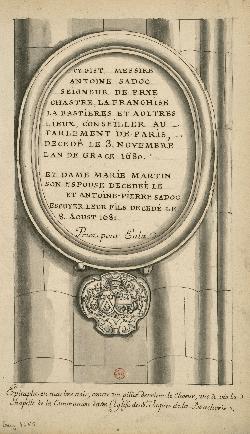 CY GIST MESSIRE
ANTOINE SADOC
SEIGNEUR DE PRXE
CHASTRE, LA FRANCHISE
LA BASTIERES ET AOLTRES
LIEUX, CONSEILLER AU
PARLEMENT DE PARIS,
DECEDÉ LE 3. NOVEMBRE
LAN DE GRACE 1680.
ET DAME MARIE MARTIN
SON ESPOUSE DECEDEÉ LE
ET ANTOINE-PIERRE SADOC
ESCUYER LEUR FILS DECEDÉ LE
8. AOUST 1681.
Priez pour Eulx
Epitaphe en marbre noir, contre un pillier derriere le Choeur, vis à vis la
Chapelle de la Communion dans l'Eglise de St Jacques de la Boucherie.